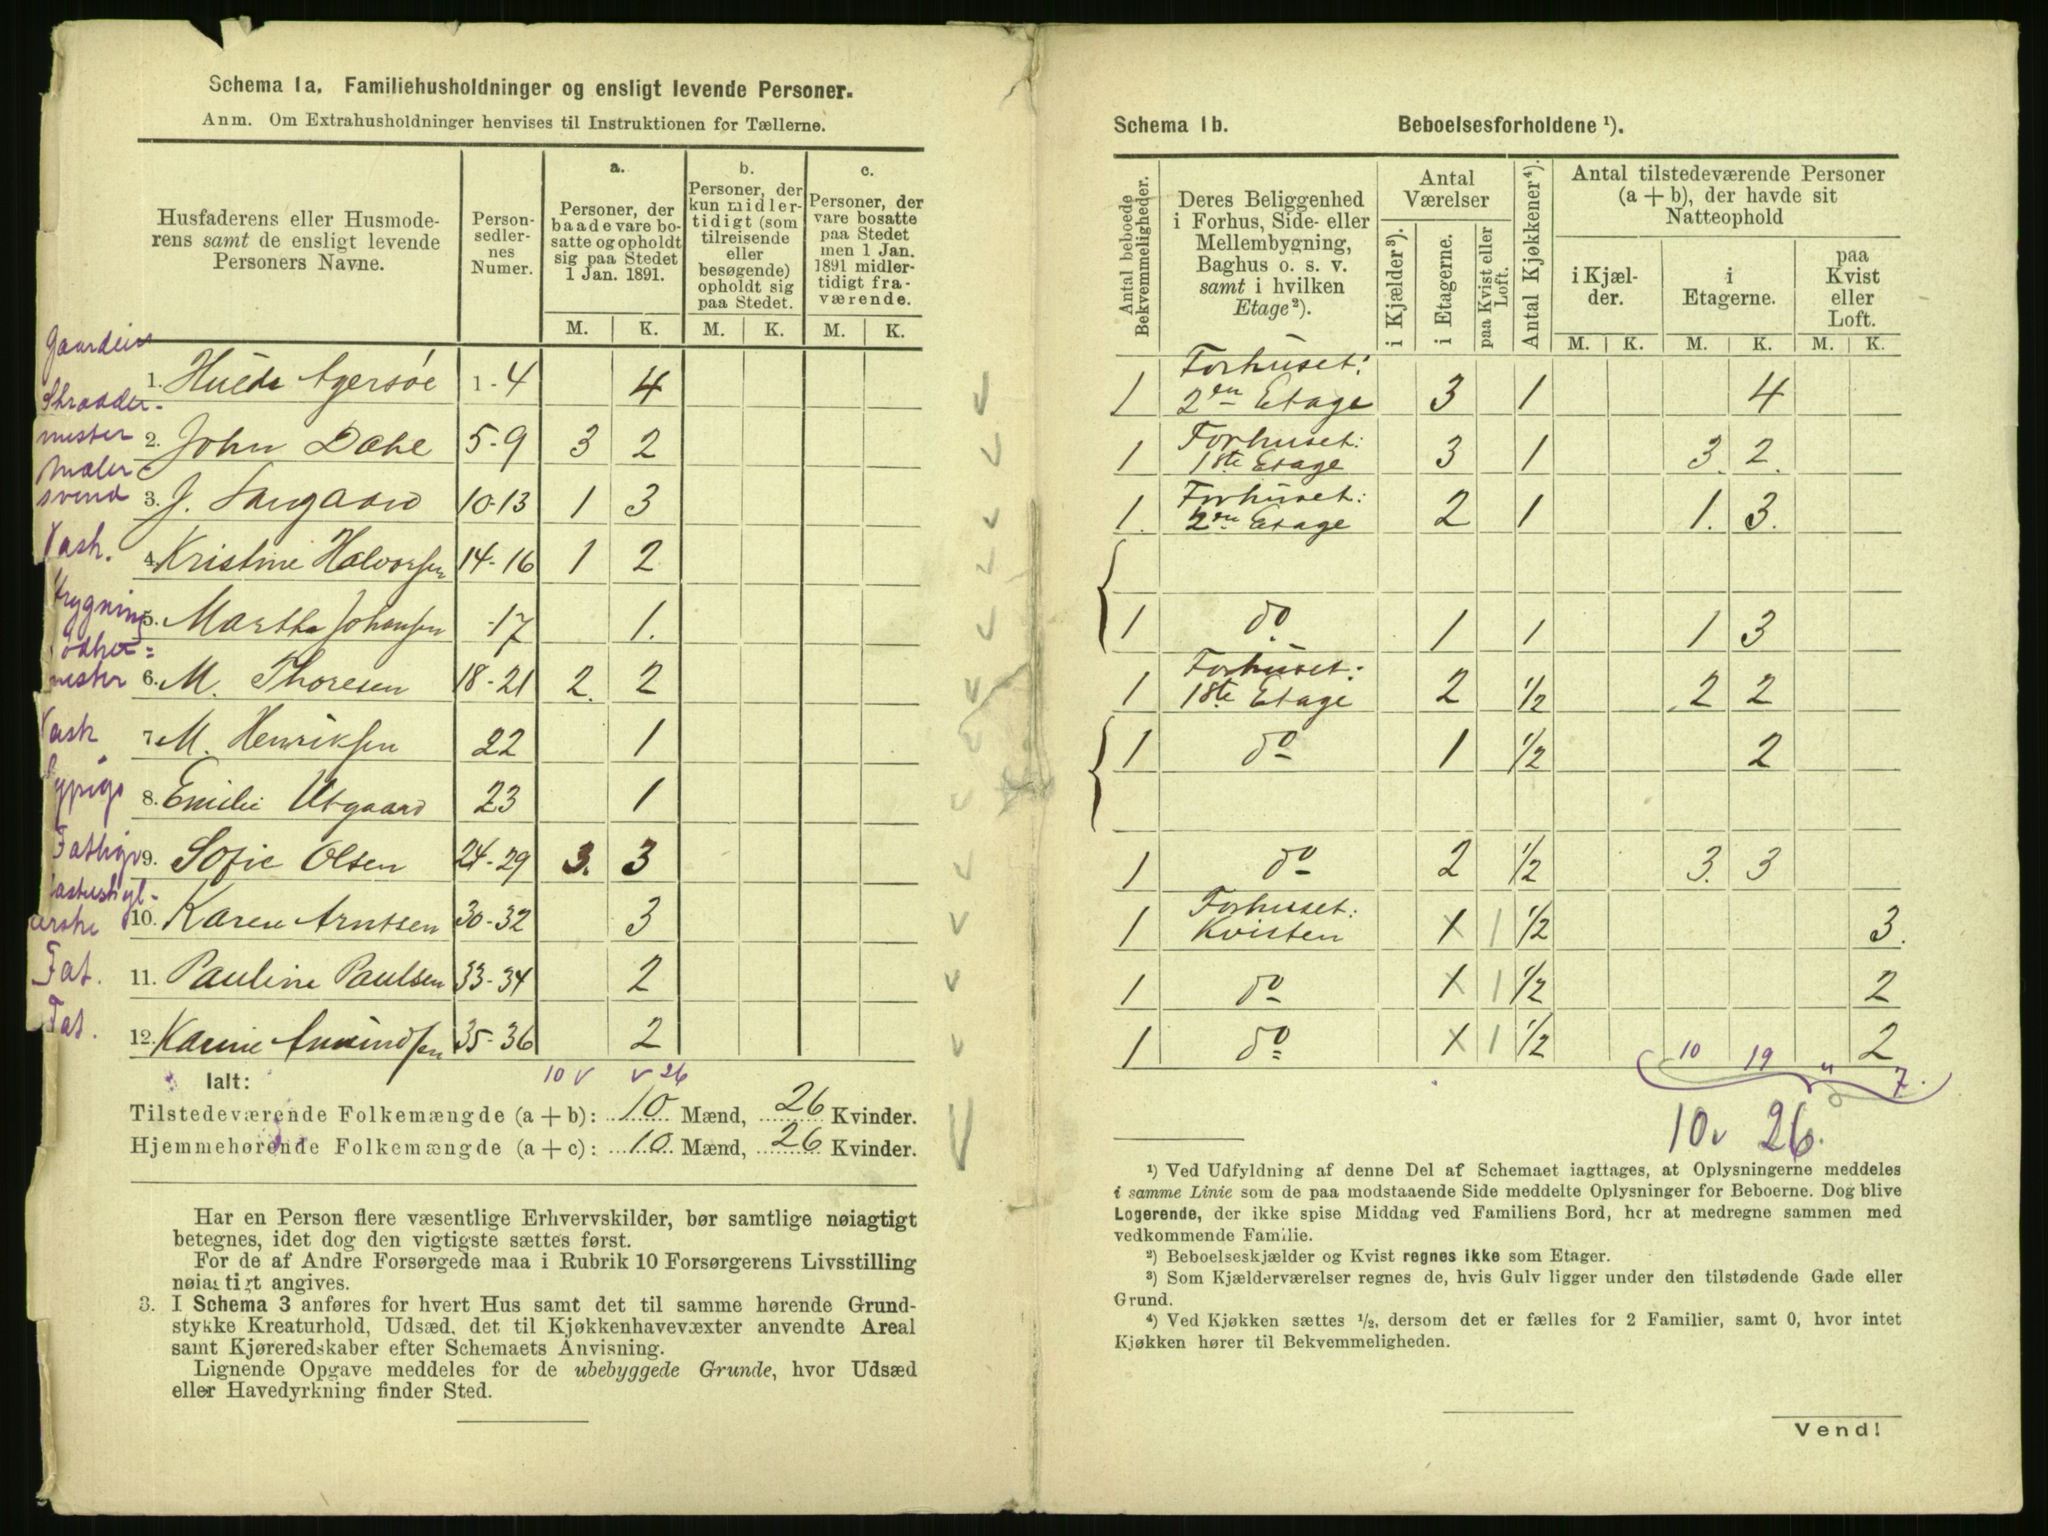 Schema 1a. Familiehusholdninger og ensligt levende Personer.
Anm. Om Extrahusholdninger henvises til Instruktionen for Tællerne.
Husfaderens eller Husmode-
rens samt de ensligt levende
Personers Navne.
Person-
sedler-
nes
Numer.
a.
Personer, der
baade vare bo-
satte og opholdt
sig paa Stedet
1 Jan. 1891.
b.
Personer, der
kun midler-
tidigt (som
tilreisende
eller
besøgende)
opholdt sig
paa Stedet.
c.
Personer, der
vare bosatte
paa Stedet
men 1 Jan.
1891 midler-
tidigt fra-
værende.
M. K. M. K. M. K.
1. Agersøe 1-4 4
mester 2. John Dahl 5-9 3 2
svend 3. J. 10-13 1 3
Vask. 4. Kristine Halvorsen 14-16 1 2
5. Martha Johansen -17 1.
mester 6. M. Thoresen 18-21 2. 2
Vask 7. M. Henriksen 22 1
8. Emilie Utgaard 23 1
9. Sofie Olsen 24-29 3. 3
10. Karen Arntsen 30-32 3
Fat. 11. Pauline Paulsen 33-34 2
Fat. 12. Karine Amundsen 35-36 2
10 v v 26
Ialt:
Tilstedeværende Folkemængde (a + b): 10 Mænd, 26 Kvinder.
Hjemmehørende Folkemængde (a + c): 10 Mænd, 26 Kvinder.
Har en Person flere væsentlige Erhvervskilder, bør samtlige nøiagtigt
betegnes, idet dog den vigtigste sættes først.
For de af Andre Forsørgede maa i Rubrik 10 Forsørgerens Livsstilling
nøiagtigt angives.
3. I Schema 3 anføres for hvert Hus samt det til samme hørende Grund-
stykke Kreaturhold, Udsæd, det til Kjøkkenhavevæxter anvendte Areal
samt Kjøreredskaber efter Schemaets Anvisning.
Lignende Opgave meddeles for de ubebyggede Grunde, hvor Udsæd
eller Havedyrkning finder Sted.
Schema 1b. Beboelsesforholdene ¹).
Antal beboede
Bekvemmeligheder.
Deres Beliggenhed
i Forhus, Side- eller
Mellembygning,
Baghus o. s. v.
samt i hvilken
Etage²).
Antal
Værelser
i Kjælder³).
i Etagerne.
paa Kvist eller
Loft.
Antal Kjøkkener⁴).
Antal tilstedeværende Personer
(a + b), der havde sit
Natteophold
i Kjæl-
der.
i
Etagerne.
paa
Kvist
eller
Loft.
M. K. M. K. M. K.
Forhuset:
1 2den Etage 3 1 4
Forhuset:
1 1ste Etage 3 1 3. 2.
Forhuset:
1. 2den Etage 2 1 1. 3.
1 do 1 1 1 3
Forhuset:
1 1ste Etage 2 1/2 2 2
1 do 1 1/2 2
1 do 2 1/2 3. 3
Forhuset:
1 Kvisten 1 1 1/2 3.
1 do 1 1 1/2 2
1 do 1 1 1/2 2
10 19 " 7.
10 v 26.
¹) Ved Udfyldning af denne Del af Schemaet iagttages, at Oplysningerne meddeles
i samme Linie som de paa modstaaende Side meddelte Oplysninger for Beboerne. Dog blive
Logerende, der ikke spise Middag ved Familiens Bord, her at medregne sammen med
vedkommende Familie.
²) Beboelseskjælder og Kvist regnes ikke som Etager.
³) Som Kjælderværelser regnes de, hvis Gulv ligger under den tilstødende Gade eller
Grund.
⁴) Ved Kjøkken sættes ½, dersom det er fælles for 2 Familier, samt 0, hvor intet
Kjøkken hører til Bekvemmeligheden.
Vend!